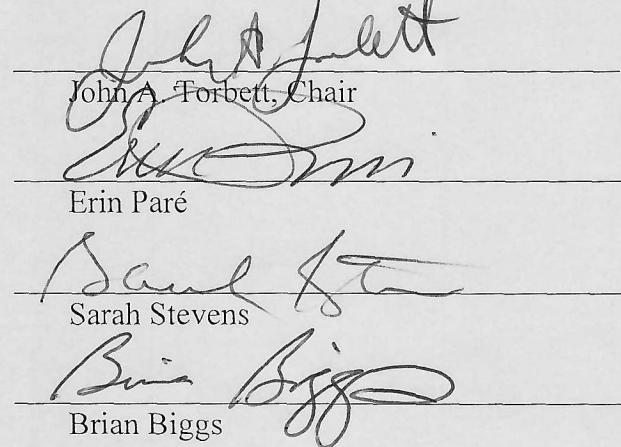 John A. Torbett
John A. Torbett, Chair
Erin Paré
Sarah Stevens
Sarah Stevens
Brian Biggs
Brian Biggs